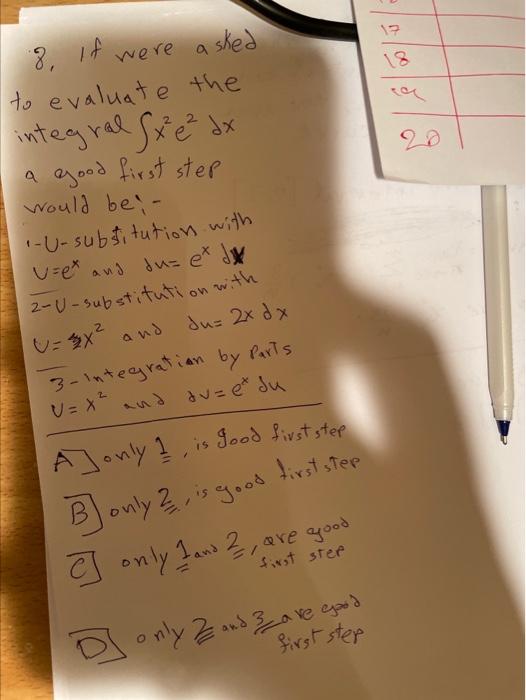 8, If were asked
to evaluate the
integral ∫x²e² dx
a good first step
would be:-
1-U-substitution with
U=eˣ and du= eˣ dx
2-U-substitution with
U= x² and du= 2x dx
3-integration by Parts
U=x² and dv=eˣ du
A] only 1, is good first step
B] only 2, is good first step
C] only 1 and 2, are good
first step
D] only 2 and 3 are good
first step
17
18
20